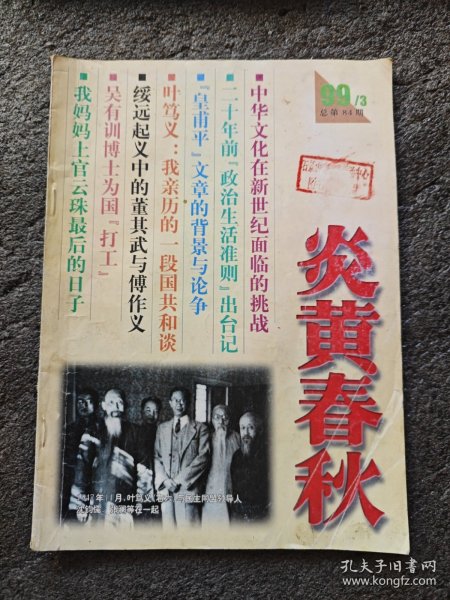 99/3
总第84期
炎黄春秋
■中华文化在新世纪面临的挑战
■二十年前『政治生活准则』出台记
■『皇甫平』文章的背景与论争
■叶笃义：我亲历的一段国共和谈
■绥远起义中的董其武与傅作义
■吴有训博士为国『打工』
■我妈妈上官云珠最后的日子
年11月，叶笃义
民主同盟领导人
沈钧儒、张澜等在一起
孔夫子旧书网
www.kongfz.com